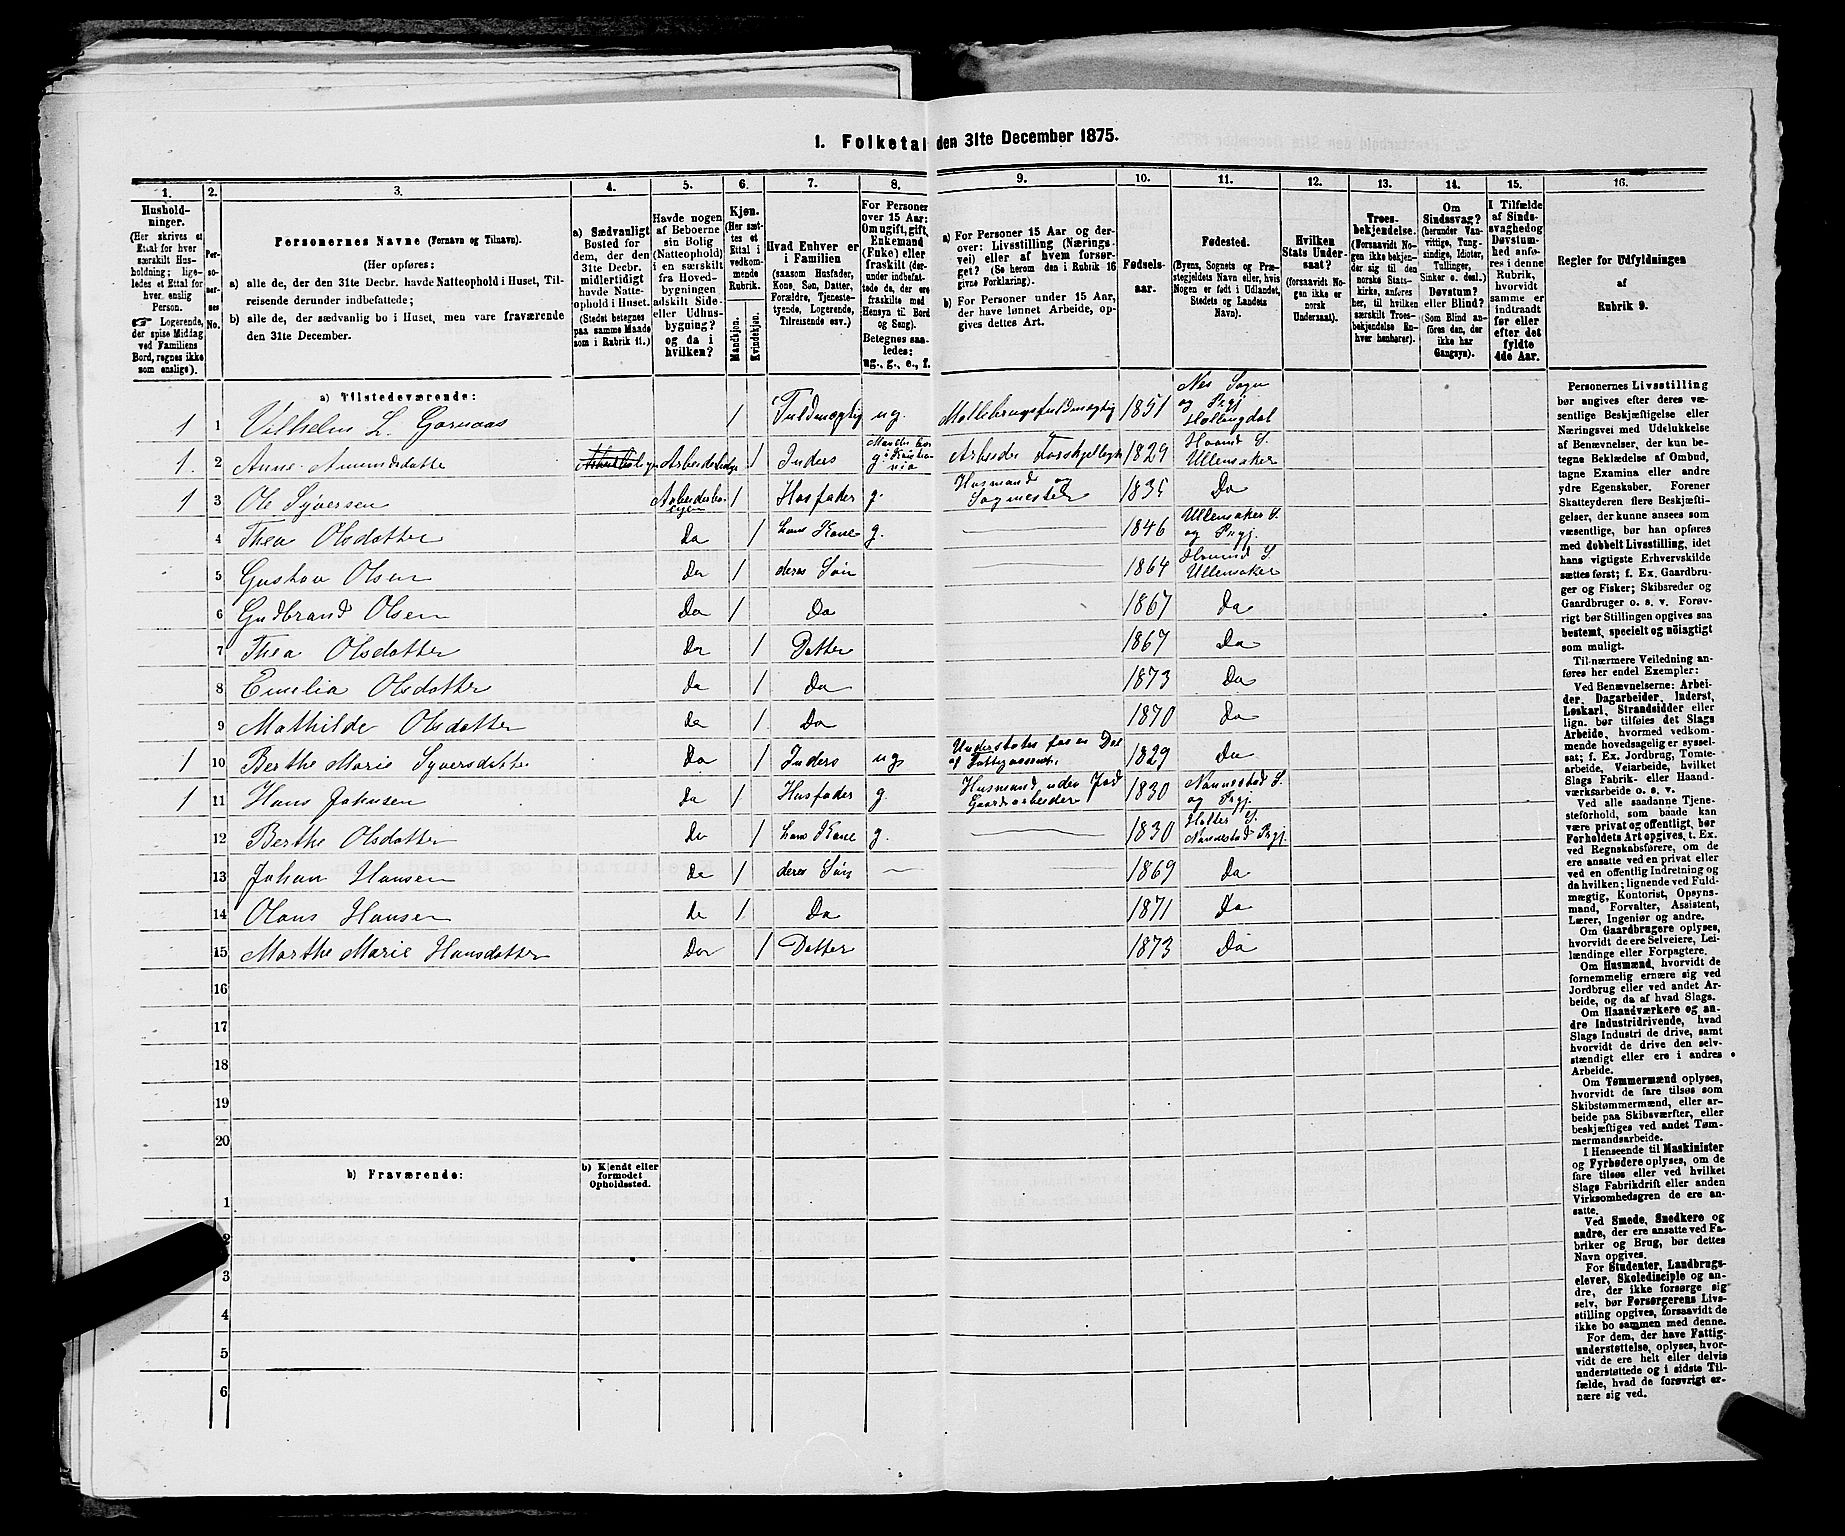 1. Folketal den 31te December 1875.
1. 2. 3. 4. 5. 6. 7. 8. 9. 10. 11. 12. 13. 14. 15. 16.
Hushold-
ninger.
(Her skrives et
Ettal for hver
særskilt Hus-
holdning; lige-
ledes et Ettal for
hver enslig
Person.
☞ Logerende,
der spise Middag
ved Familiens
Bord, regnes ikke
som enslige).
Per-
so-
ner-
nes
No.
Personernes Navne (Fornavn og Tilnavn).
(Her opføres:
a) alle de, der den 31te Decbr. havde Natteophold i Huset, Til-
reisende derunder indbefattede;
b) alle de, der sædvanlig bo i Huset, men vare fraværende
den 31te December.
a) Sædvanligt
Bosted for
dem, der den
31te Decbr.
midlertidigt
havde Natte-
ophold i Huset.
(Stedet betegnes
paa samme Maade
som i Rubrik 11.)
Havde nogen
af Beboerne
sin Bolig
(Natteophold)
i en særskilt
fra Hoved-
bygningen
adskilt Side-
eller Udhus-
bygning?
og da i
hvilken?
Kjøn.
(Her sæt-
tes et
Ettal i
vedkom-
mende
Rubrik.
Mandkjøn.
Kvindekjøn.
Hvad Enhver er
i Familien
(saasom Husfader,
Kone, Søn, Datter,
Forældre, Tjeneste-
tyende, Logerende,
Tilreisende osv.)
For Personer
over 15 Aar:
Om ugift, gift,
Enkemand
(Enke) eller
fraskilt (der-
under indbefat-
tede, der ere
fraskilte med
Hensyn til Bord
og Seng).
Betegnes saa-
ledes:
ug., g., e., f.
a) For Personer 15 Aar og der-
over: Livsstilling (Nærings-
vei) eller af hvem forsør-
get? (Se herom den i Rubrik 16
givne Forklaring).
b) For Personer under 15 Aar,
der have lønnet Arbeide, op-
gives dettes Art.
Fødsels-
aar.
Fødested.
(Byens, Sognets og Præ-
stegjeldets Navn eller, hvis
Nogen er født i Udlandet,
Stedets og Landets
Navn).
Hvilken
Stats Under-
saat?
(forsaavidt No-
gen ikke er
norsk
Undersaat).
Troes-
bekjendelse.
(Forsaavidt No-
gen ikke bekjen-
der sig til den
norske Stats-
kirke, anføres
her, til hvilken
særskilt Troes-
bekjendelse En-
hver henhører).
Om
Sindssvag?
(herunder Van-
vittige, Tung-
sindige, Idioter,
Tullinger,
Sinker o. desl.)
Døvstum?
eller Blind?
(Som Blind an-
føres den, der
ikke har
Gangsyn).
I Tilfælde
af Sinds-
svaghed og
Døvstum-
hed anfø-
res i denne
Rubrik,
hvorvidt
samme er
indtraadt
før eller
efter det
fyldte
4de Aar.
Regler for Udfyldningen
af
Rubrik 9.
a) Tilstedeværende:
1 1 Vilhelm L. Garnaas 1 Fuldmægtig ug. Møllebrugsfuldmægtig 1851 Nes Sogn og Prgj Hallingdal
1. 2 Anne Amundsdatter 1 Inders g. Arbeider Forskjelligt 1829 Hovind S. Ullensaker
1 3 Ole Syversen 1 Husfader g. Husmand og 1835 Do
4 Thea Olsdatter Do 1 hans Kone g. 1846 Ullensaker S. og Prgj.
5 Gustav Olsen Do 1 deres Søn 1864 Hovind S. Ullensaker
6 Gudbrand Olsen Do 1 Do 1867 Do
7 Thea Olsdatter Do 1 Datter 1867 Do
8 Emelia Olsdatter Do 1 Do 1873 Do
9 Mathilde Olsdatter Do 1 Do 1870 Do
1 10 Berthe Marie Syversdatter Do 1 Inders ug Understøttes for en Del af Fattigvæsenet. 1829 Do
1 11 Hans Johnsen Do 1 Husfader g. Husmand uden Jord Gaardsarbeider 1830 Nannestad S. og Prgj.
12 Berthe Olsdatter Do 1 hans Kone g. 1830 Holter S. Nannestad Prgj.
13 Johan Hansen Do 1 deres Søn — 1869 Do
14 Olaus Hansen Do 1 Do 1871 Do
15 Marthe Marie Hansdatter Do 1 Datter 1873 Do
16
17
18
19
20
b) Fraværende:
b) Kjendt eller
formodet
Opholdssted.
1
2
3
4
5
6
Personernes Livsstilling
bør angives efter deres væ-
sentlige Beskjæftigelse eller
Næringsvei med Udelukkelse
af Benævnelser, der kun be-
tegne Beklædelse af Ombud,
tagne Examina eller andre
ydre Egenskaber. Forener
Skatteyderen flere Beskjæfti-
gelser, der kunne ansees som
væsentlige, bør han opføres
med dobbelt Livsstilling, idet
hans vigtigste Erhvervskilde
sættes først; f. Ex. Gaardbru-
ger og Fisker; Skibsreder og
Gaardbruger o. s. v. Forøv-
rigt bør Stillingen opgives saa
bestemt, specielt og nöiagtigt
som muligt.
Til nærmere Veiledning an-
føres her endel Exempler:
Ved Benævnelserne: Arbei-
der, Dagarbeider, Inderst,
Løskarl, Strandsidder eller
lign. bør tilføies det Slags
Arbeide, hvormed vedkom-
mende hovedsagelig er syssel-
sat; f. Ex. Jordbrug, Tomte-
arbeide, Veiarbeide, hvilket
Slags Fabrik- eller Haand-
værksarbeide o. s. v.
Ved alle saadanne Tjene-
steforhold, som baade kan
være privat og offentligt, bør
Forholdets Art opgives, t. Ex.
ved Regnskabsførere, om de
ere ansatte ved en privat eller
ved en offentlig Indretning og
da hvilken; lignende ved Fuld-
mægtig, Kontorist, Opsyns-
mand, Forvalter, Assistent,
Lærer, Ingeniør og andre.
Om Gaardbrugere oplyses,
hvorvidt de ere Selveiere, Lei-
lændinge eller Forpagtere.
Om Husmænd, hvorvidt de
fornemmelig ernære sig ved
Jordbrug eller ved andet Ar-
beide, og da af hvad Slags.
Om Haandværkere og an-
dre Industridrivende, hvad
Slags Industri de drive, samt
hvorvidt de drive den selv-
stændigt eller ere i andres
Arbeide.
Om Tømmermænd oplyses,
hvorvidt de fare tilsøs som
Skibstømmermænd, eller ar-
beide paa Skibsværfter, eller
beskjæftiges ved andet Tøm-
mermandsarbeide.
I Henseende til Maskinister
og Fyrbødere oplyses, om de
fare tilsøs eller ved hvilket
Slags Fabrikdrift eller anden
Virksomhedsgren de ere an-
satte.
Ved Smede, Snedkere og
andre, der ere ansatte ved Fa-
briker og Brug, bør dettes
Navn opgives.
For Studenter, Landbrugs-
elever, Skoledisciple og an-
dre, der ikke forsørge sig
selv, bør Forsørgerens Livs-
stilling opgives, forsaavidt de
ikke bo sammen med denne.
For dem, der have Fattig-
understøttelse, oplyses, hvor-
vidt de ere helt eller delvis
understøttede og i sidste Til-
fælde, hvad de forøvrigt er-
nære sig ved.